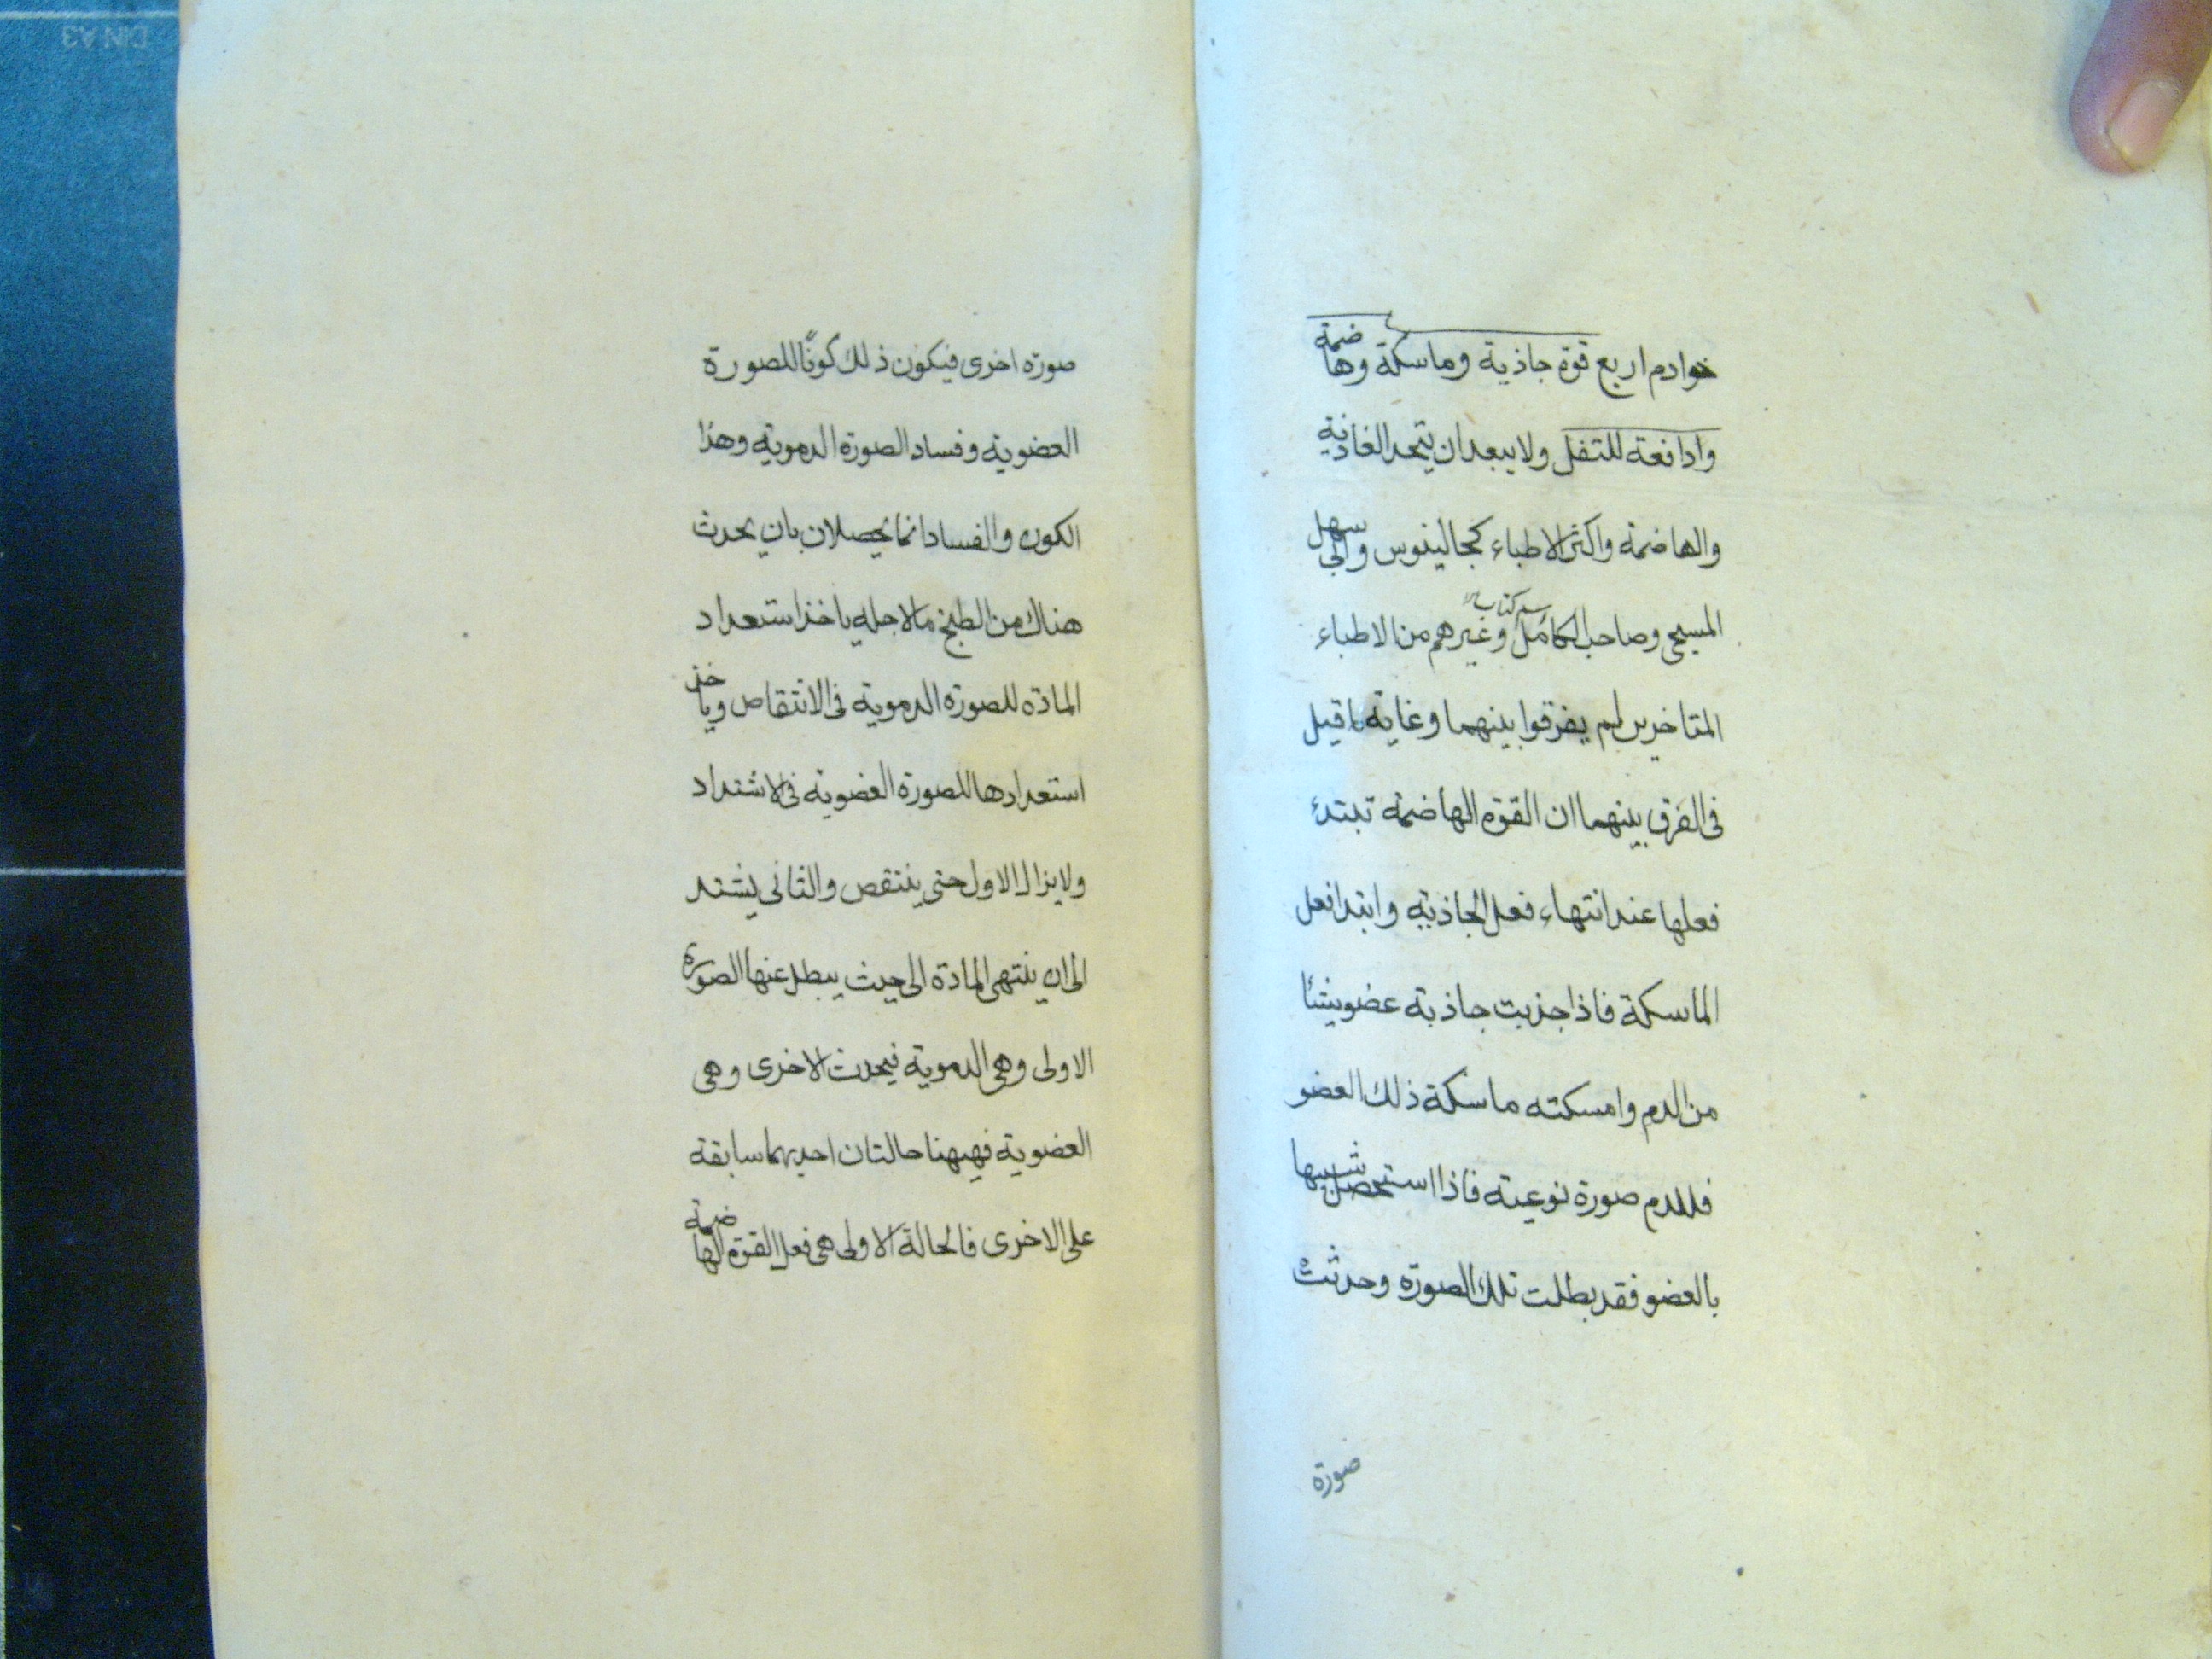 خوادم اربع قوة جاذبة وماسكة وهاضمة
ودافعة للثفل ولا يبعد ان يتحد الغاذية
والهاضمة واكثر الاطباء كجالينوس وابي سهل
المسيحي وصاحب الكامل وغيرهم من الاطباء
اسم كتاب
المتاخرين لم يفرقوا بينهما وغاية ما قيل
في الفرق بينهما ان القوة الهاضمة تبتدء
فعلها عند انتهاء فعل الجاذبة وابتدا فعل
الماسكة فاذا جذبت جاذبة عضو شيئا
من الدم وامسكته ماسكة ذلك العضو
فللدم صورة نوعية فاذا استحصل شبيها
بالعضو فقد بطلت تلك الصورة وحدثت
صورة
صورة اخرى فيكون ذلك كونًا للصورة
العضوية وفساد الصورة الدموية وهذا
الكون والفساد انما يحصلان بان يحدث
هناك من الطبخ ما لاجله ياخذ استعداد
المادة للصورة الدموية في الانتقاص وياخذ
استعدادها للصورة العضوية في الاشتداد
ولا يزال الاول حتى ينتقص والثاني يشتد
الى ان ينتهى المادة الى حيث يبطل عنها الصورة
الاولى وهي الدموية فيحدث الاخرى وهي
العضوية فههنا حالتان احديهما سابقة
على الاخرى فالحالة الاولى هي فعل القوة الهاضمة
DIN A3